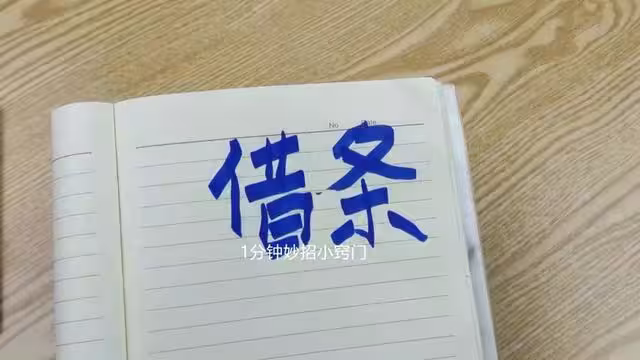 No Date
借条
1分钟妙招小窍门